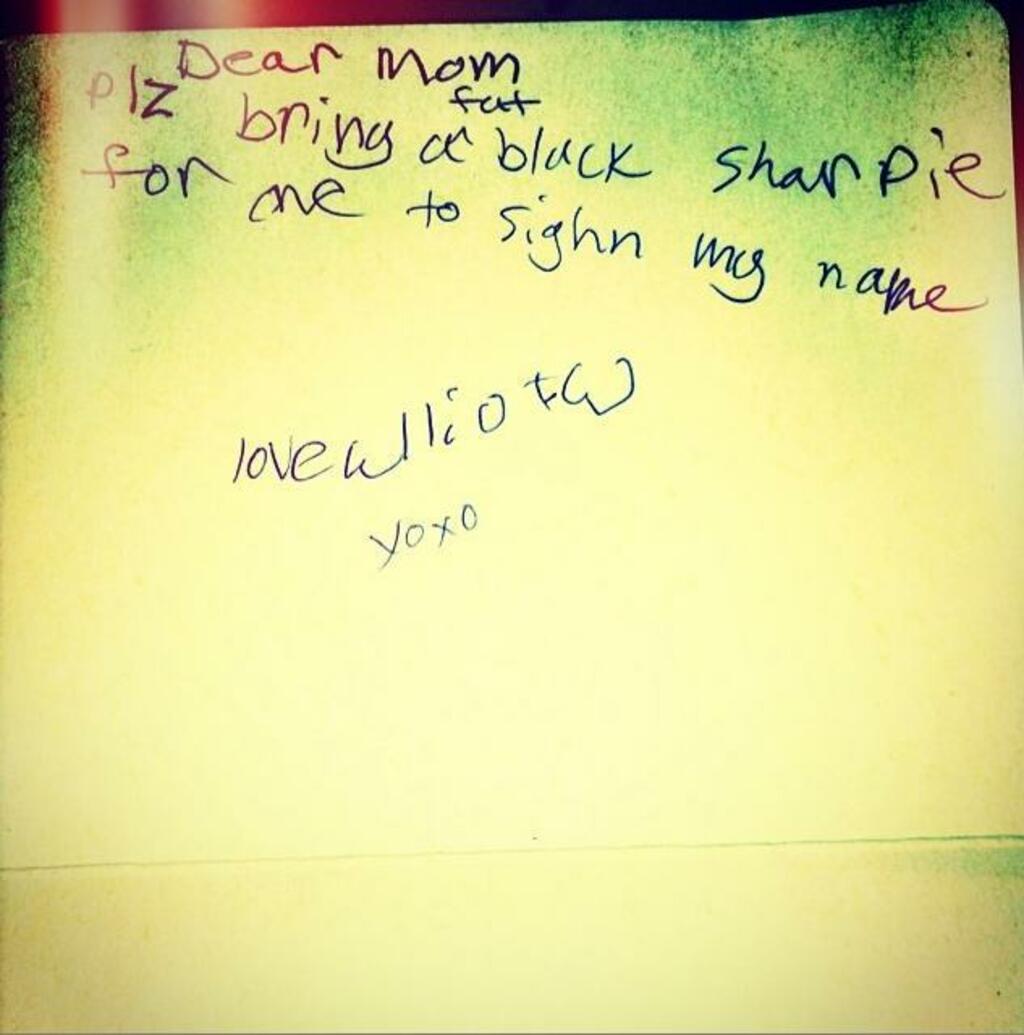 Dear Mom
plz bring a fat black sharpie
for me to sighn my name
love elliot W
yoxo